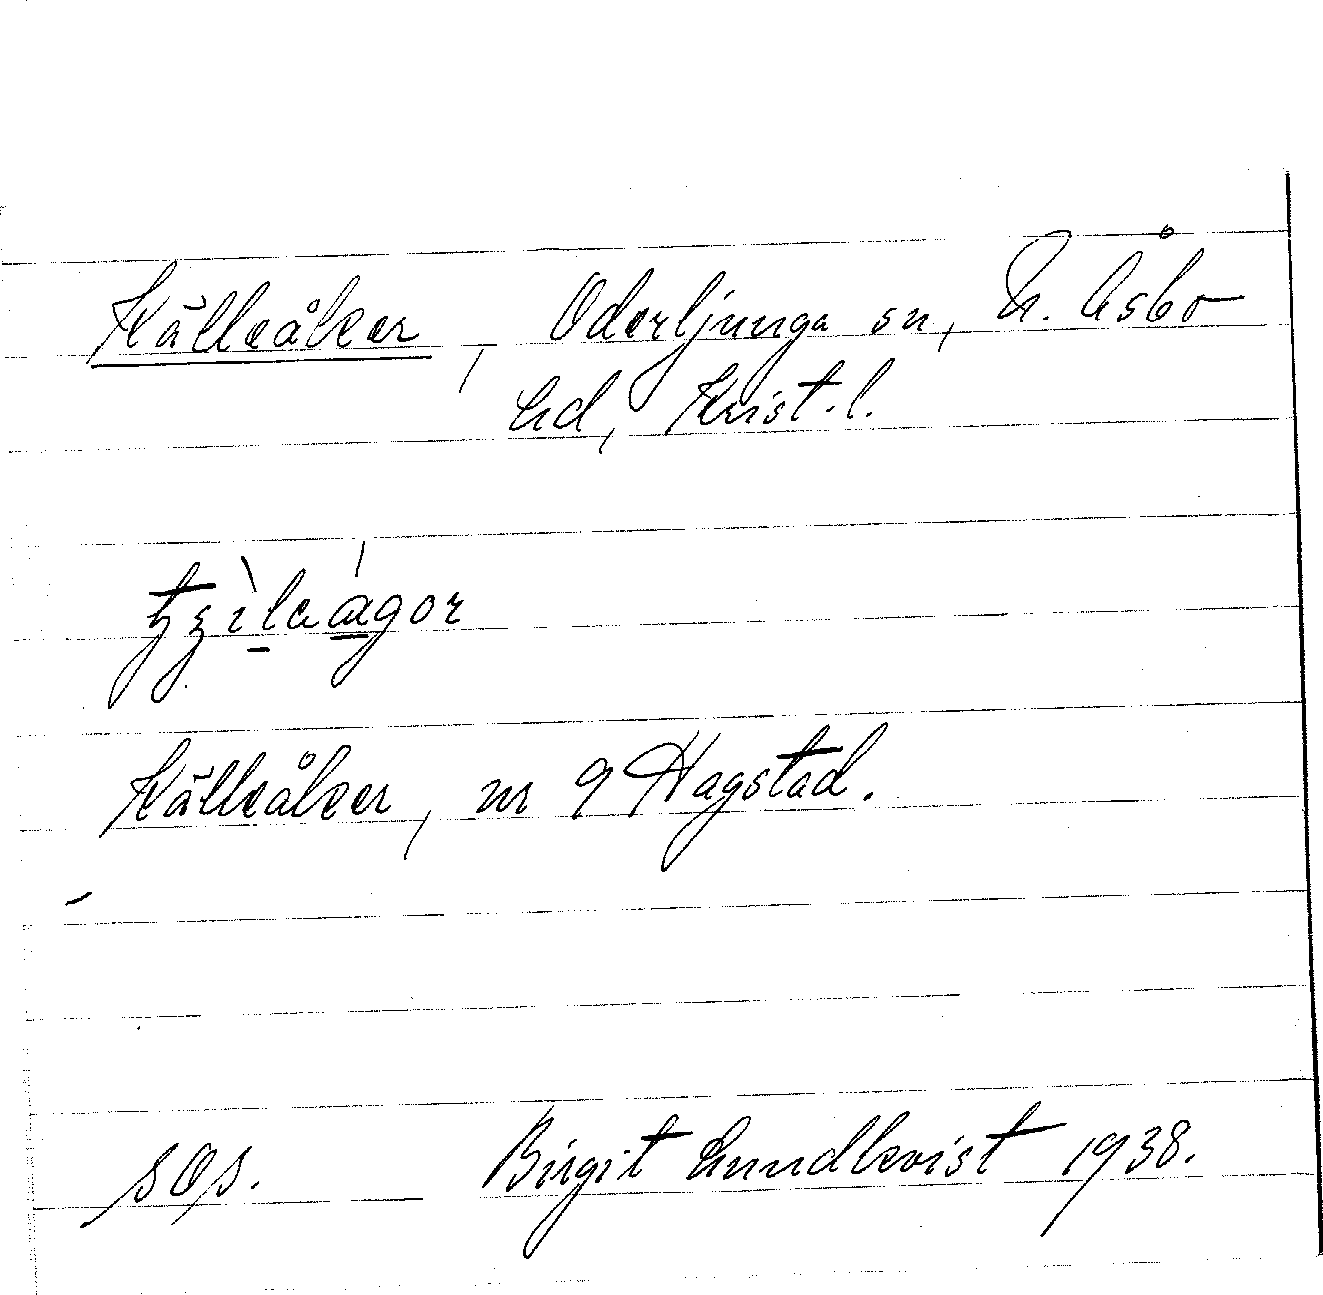 Källeåker, Oderljunga sn, N. Åsbo
hd, Krist. l.
Källeåker, nr 9 Hagstad.
sOs. Birgit Lundkvist 1938.